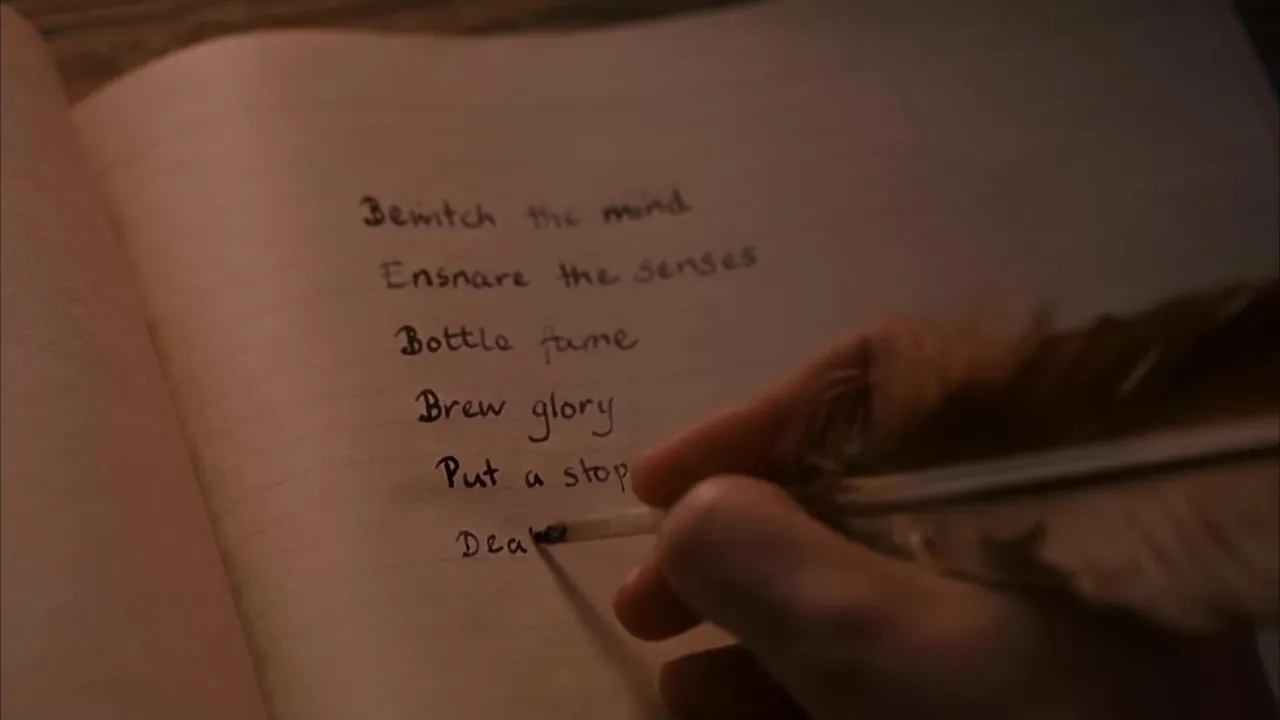 Bewitch the mind
Ensnare the senses
Bottle fame
Brew glory
Put a stop
Dea